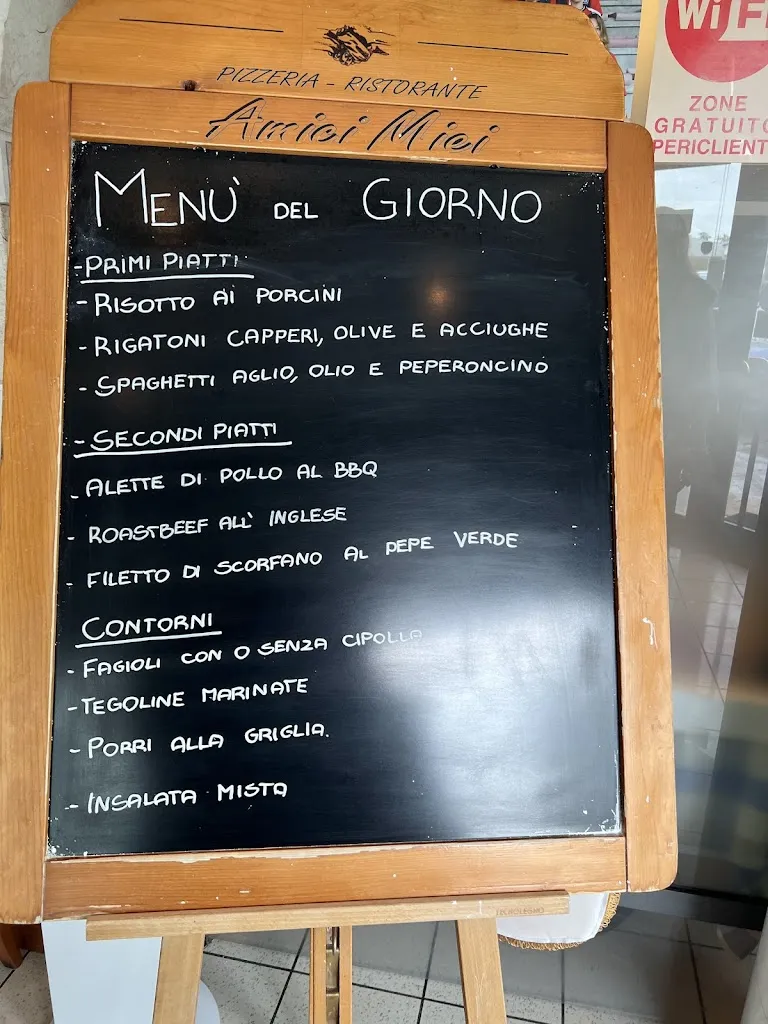 PIZZERIA - RISTORANTE
Amici Miei
WiFi
ZONE
GRATUITO
PERICLIENT
MENÙ DEL GIORNO
- PRIMI PIATTI
- RISOTTO AI PORCINI
- RIGATONI CAPPERI, OLIVE E ACCIUGHE
- SPAGHETTI AGLIO, OLIO E PEPERONCINO
- SECONDI PIATTI
- ALETTE DI POLLO AL BBQ
- ROASTBEEF ALL' INGLESE
- FILETTO DI SCORFANO AL PEPE VERDE
CONTORNI
- FAGIOLI CON O SENZA CIPOLLA
- TEGOLINE MARINATE
- PORRI ALLA GRIGLIA.
- INSALATA MISTA